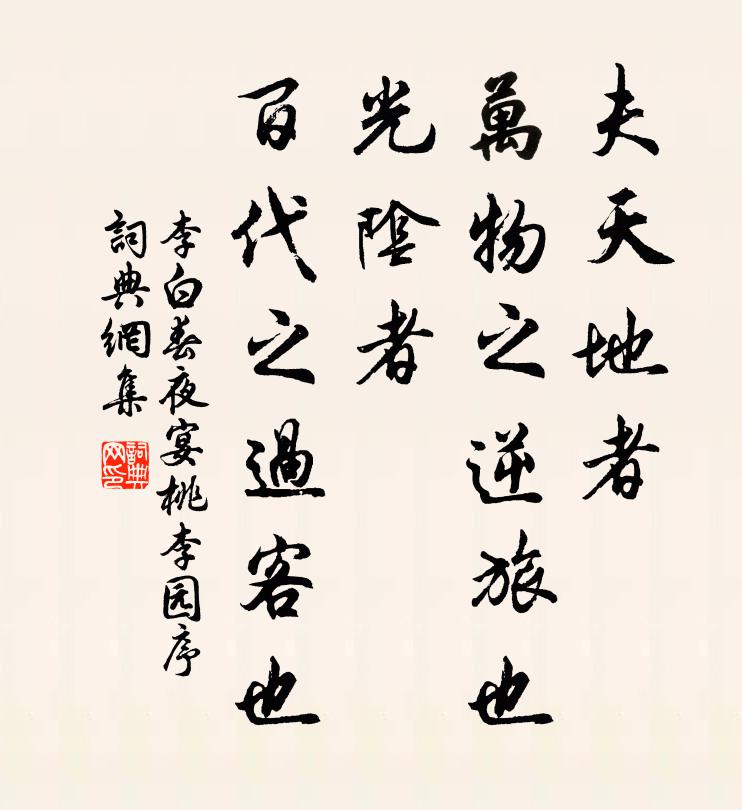 夫天地者
萬物之逆旅也
光陰者
百代之過客也
李白春夜宴桃李园序
詞典網集
詞典网印